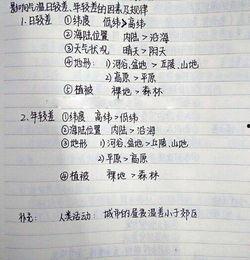 影响气温日较差、年较差的因素及规律
1. 日较差 ①纬度 低纬>高纬
②海陆位置 内陆 > 沿海
③天气状况 晴天 > 阴天
④地形: 1) 河谷、盆地 > 丘陵、山地
2) 高原 > 平原
⑤植被 裸地 > 森林
2. 年较差 ①纬度 高纬 > 低纬
②海陆位置 内陆 > 沿海
③地形 1) 河谷、盆地 > 丘陵、山地
2) 平原 > 高原
④植被 裸地 > 森林
补充: 人类活动: 城市的昼夜温差小于郊区